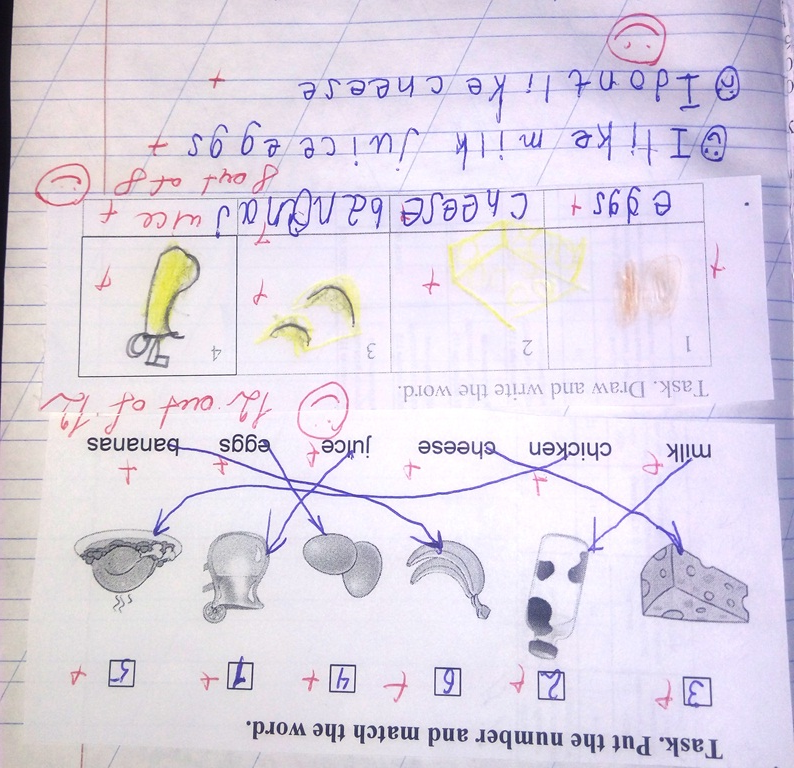 Task. Put the number and match the word.
3 + 2 + 6 + 4 + 1 + 5 +
milk chicken cheese juice eggs bananas
12 out of 12
Task. Draw and write the word.
1 2 3 4
eggs + cheese banana juice +
8 out of 8
I like milk juice eggs +
I dont like cheese +